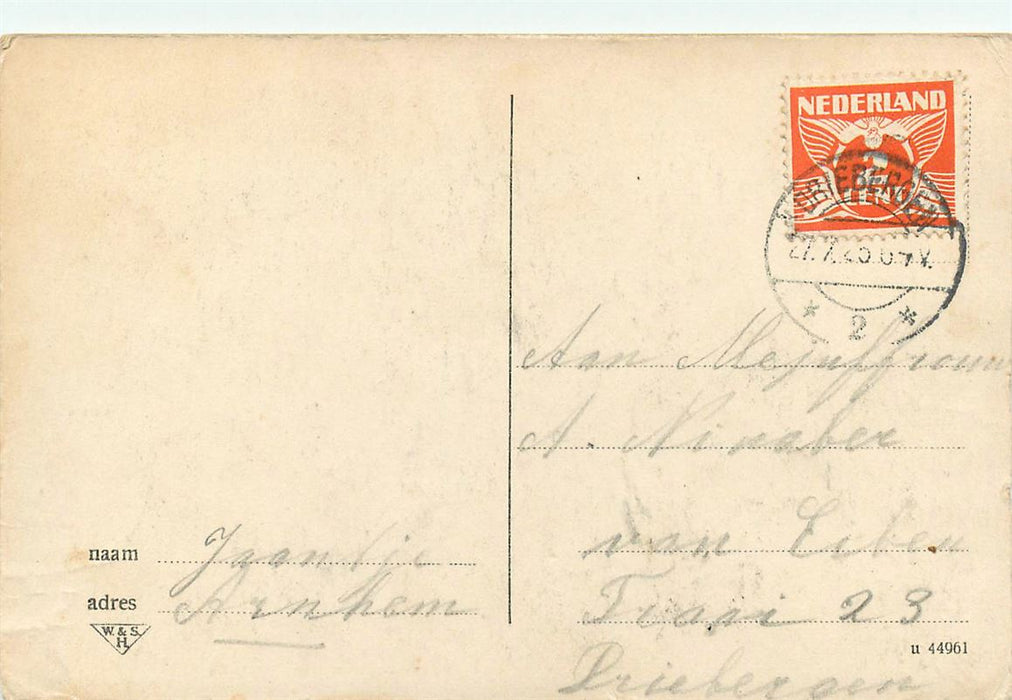 NEDERLAND
CENT
27.7.25
2
Aan Mejuffrouw
A. Ninaber
van Eiben
23
Driebergen
naam Jaantje
adres Arnhem
W. & S.
H.
u 44961